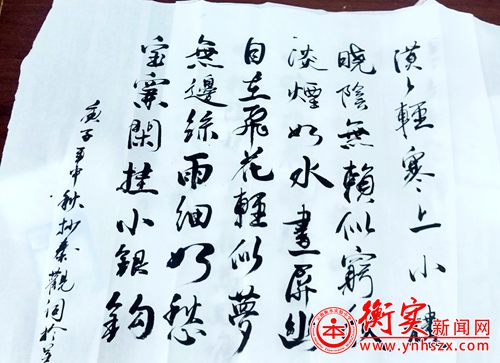 漠々輕寒上小樓
曉陰無賴似窮秋
淡煙如水畫屏幽
自在飛花輕似夢
無邊絲雨細如愁
寶簾閑挂小銀鈎
庚子年中秋抄秦觀詞於
衡实新闻网
www.ynhszx.com